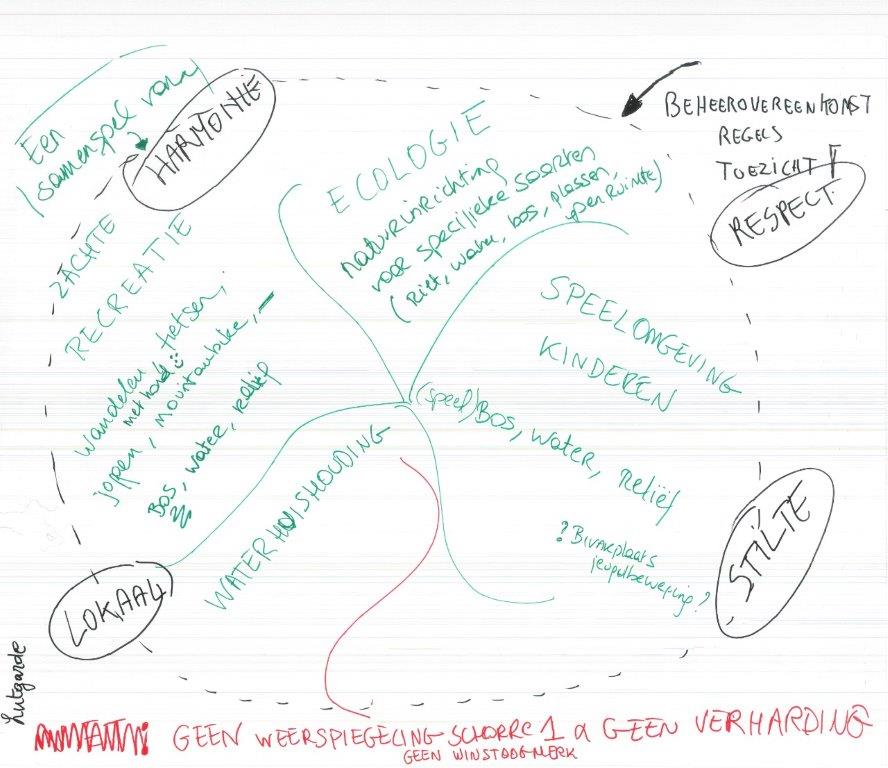 Een
samenspel van
HARMONIE
BEHEEROVEREENKOMST
REGELS
TOEZICHT !!
RESPECT
ECOLOGIE
natuurinrichting
voor specifieke soorten
(riet, water, bos, plassen,
open Ruimte)
ZACHTE
RECREATIE
wandelen, fietsen,
met hond :)
joggen, mountainbike, –
Bos, water, reliëf
SPEELOMGEVING
KINDEREN
(speel)Bos, water, Reliëf
? Bivakplaats
jeugdbeweging?
STILTE
WATERHUISHOUDING
LOKAAL
Lutgarde
GEEN WEERSPIEGELING SCHORRE 1 a GEEN VERHARDING
GEEN WINSTOOGMERK